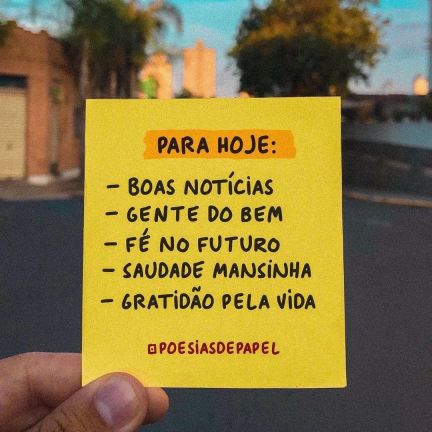 PARA HOJE:
- BOAS NOTÍCIAS
- GENTE DO BEM
- FÉ NO FUTURO
- SAUDADE MANSINHA
- GRATIDÃO PELA VIDA
@POESIASDEPAPEL